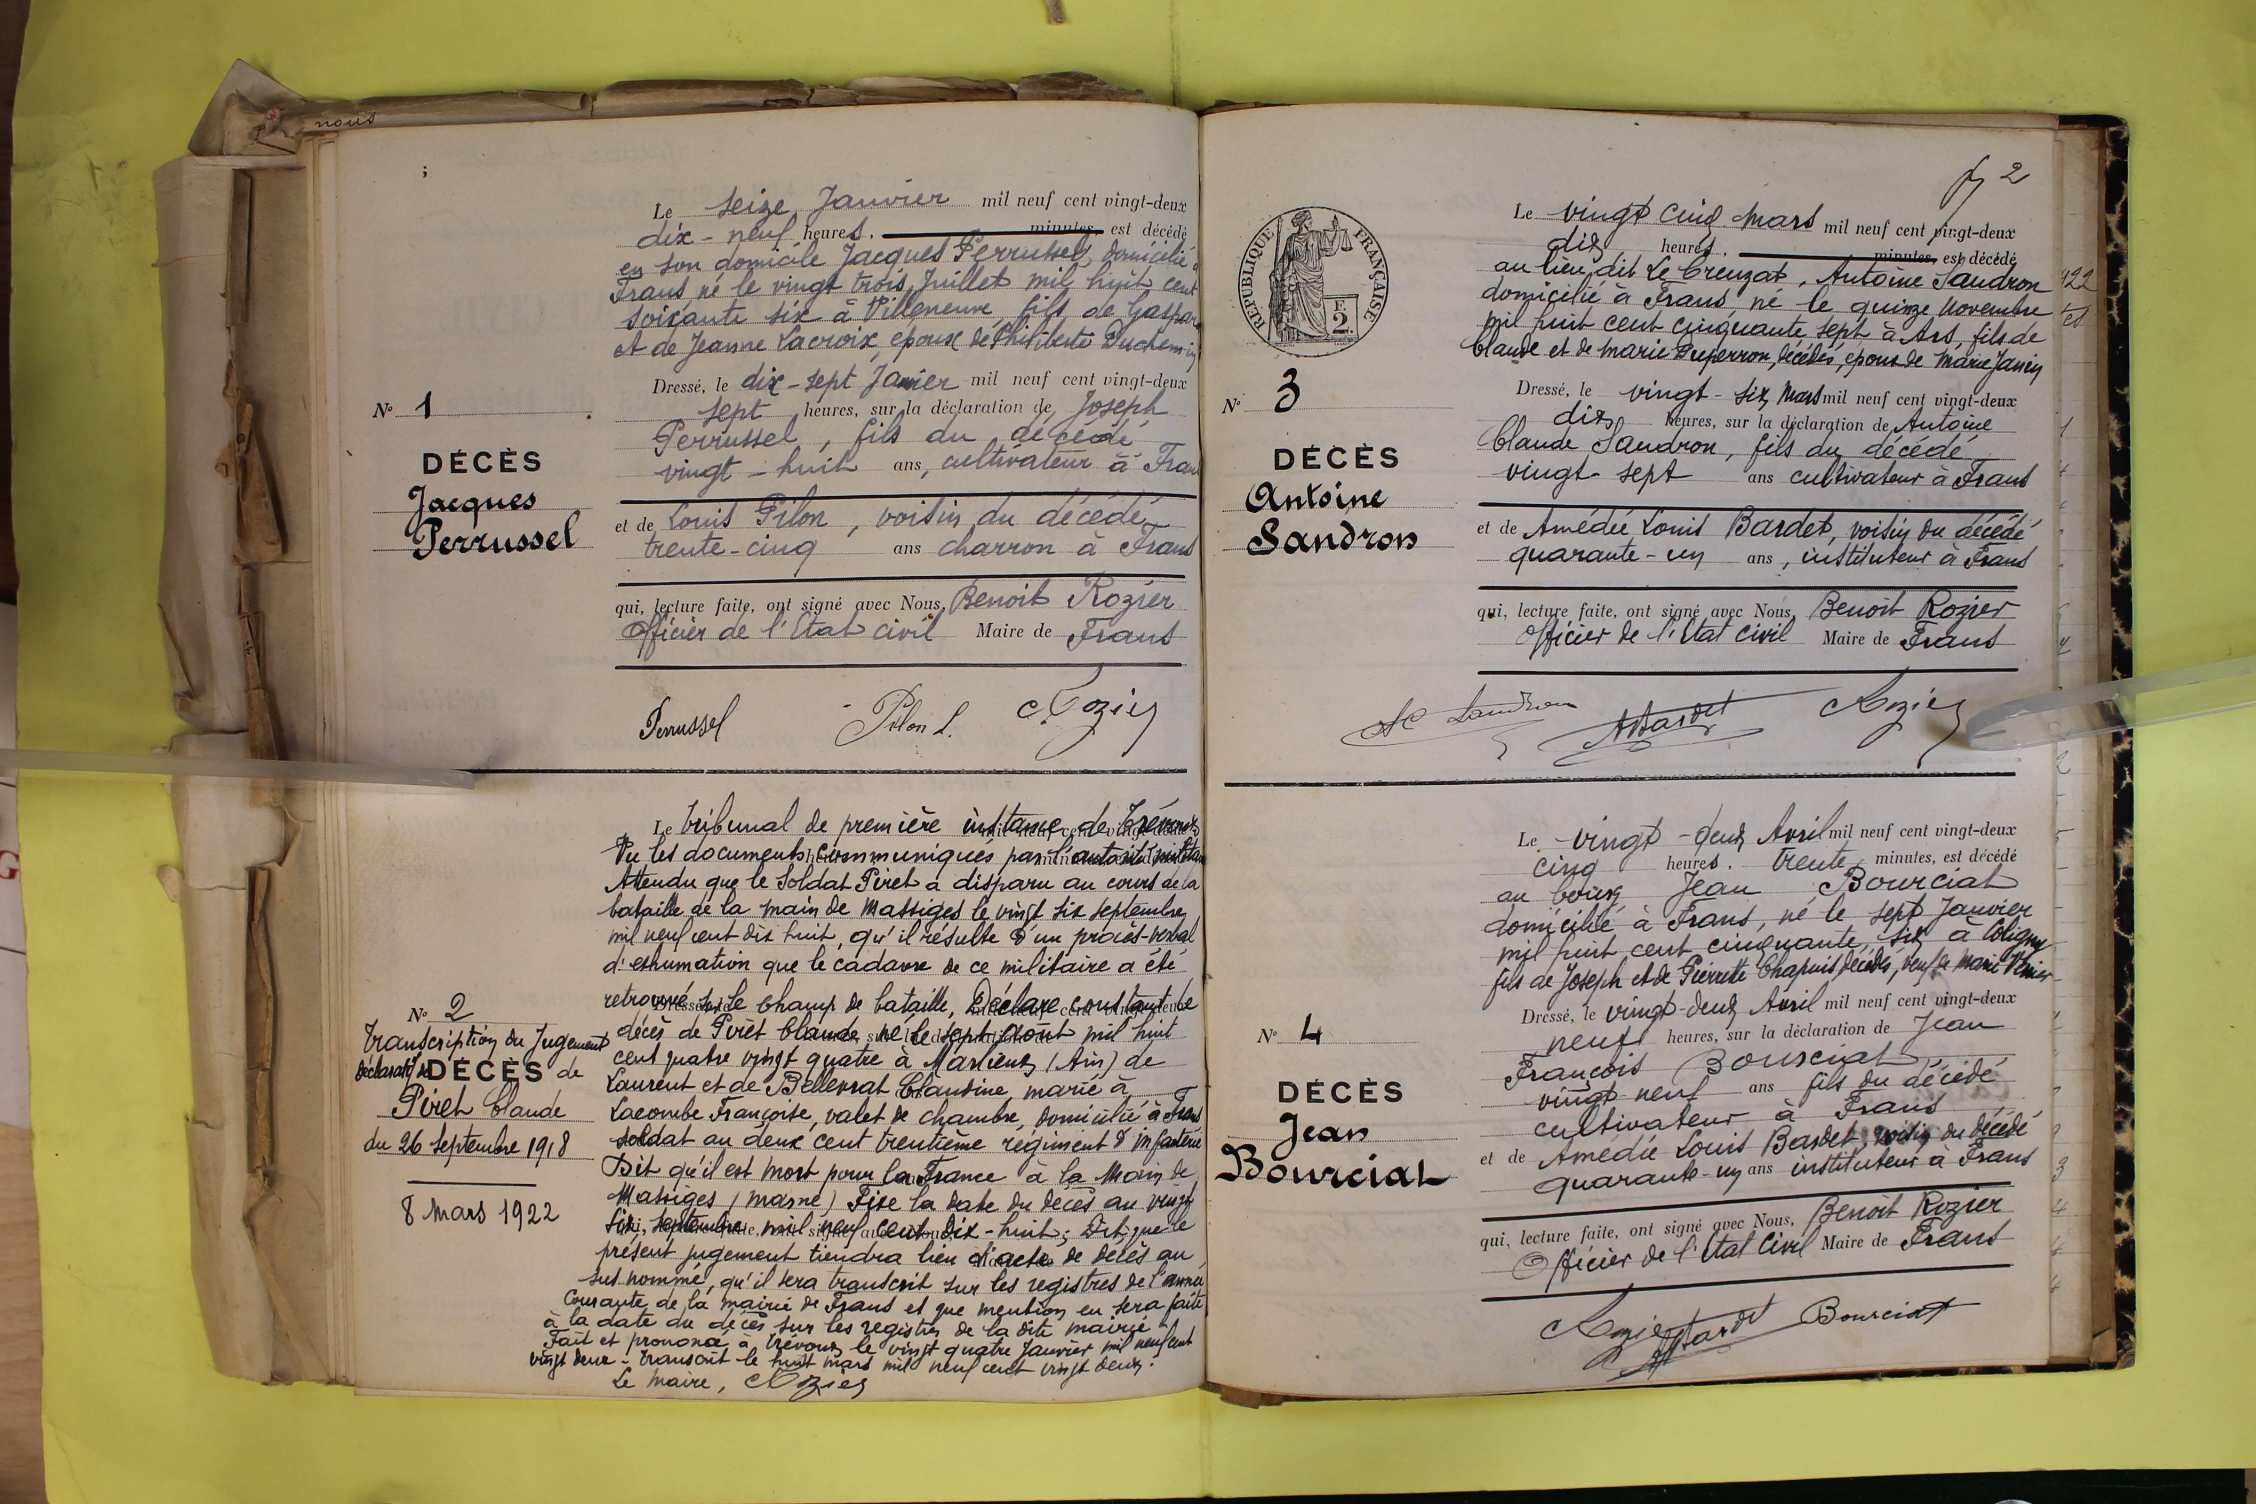 nous
Le seize Janvier mil neuf cent vingt-deux
dix-neuf heures, minutes, est décédé
en son domicile Jacques Perrussel, domicilié à
Frans né le vingt trois Juillet mil huit cent
soixante six à Villeneuve, fils de Gaspar
et de Jeanne Lacroix, époux de Philiberte Duchemin
Dressé, le dix-sept Janvier mil neuf cent vingt-deux
N° 1
sept heures, sur la déclaration de Joseph
Perrussel, fils du décédé
vingt-huit ans, cultivateur à Frans
DÉCÈS
Jacques
Perrussel
et de Louis Pilon, voisin du décédé
trente-cinq ans charron à Frans
qui, lecture faite, ont signé avec Nous, Benoit Rozier
Officier de l'Etat civil Maire de Frans
Perrussel Pilon L. Rozier
Le tribunal de première instance de Trévoux
Vu les documents communiqués par l'autorité militaire
Attendu que le soldat Piret a disparu au cours de la
bataille de la main de Massiges le vingt six septembre
mil neuf cent dix huit, qu'il résulte d'un procès-verbal
d'exhumation que le cadavre de ce militaire a été
retrouvé sur le champ de bataille, Déclare constant le
décès de Piret Claude né le sept Août mil huit
cent quatre vingt quatre à Marlieux (Ain) de
Laurent et de Bellevrat Claudine, marié à
Lacombe Françoise, valet de chambre, domicilié à Frans
soldat au deux cent trentième régiment d'infanterie
Dit qu'il est mort pour la France à la Main de
Massiges (Marne) Fixe la date du décès au vingt
six septembre mil neuf cent dix-huit; Dit que le
présent jugement tiendra lieu d'acte de décès au
sus nommé, qu'il sera transcrit sur les registres de l'année
courante de la mairie de Frans et que mention en sera faite
à la date du décès sur les registres de la dite mairie
Fait et prononcé à Trévoux le vingt quatre Janvier mil neuf cent
vingt deux - Transcrit le huit mars mil neuf cent vingt deux.
Le Maire, Rozier
N° 2
Transcription du Jugement
déclaratif de DÉCÈS de
Piret Claude
du 26 Septembre 1918
8 Mars 1922
2
RÉPUBLIQUE FRANÇAISE
E
2.
Le vingt cinq mars mil neuf cent vingt-deux
dix heures, minutes, est décédé
au lieu dit Le Creuzat, Antoine Sandron
domicilié à Frans né le quinze novembre
mil huit cent cinquante sept à Ars, fils de
Claude et de Marie Duperron, décédés, époux de Marie Janin
N° 3
Dressé, le vingt-six Mars mil neuf cent vingt-deux
dix heures, sur la déclaration de Antoine
Claude Sandron, fils du décédé
vingt-sept ans cultivateur à Frans
DÉCÈS
Antoine
Sandron
et de Amédée Louis Bardet, voisin du décédé
quarante-un ans, instituteur à Frans
qui, lecture faite, ont signé avec Nous, Benoit Rozier
Officier de l'Etat civil Maire de Frans
AC Sandron ABardet Rozier
Le vingt-deux Avril mil neuf cent vingt-deux
cinq heures. trente minutes, est décédé
au bourg Jean Bourciat
domicilié à Frans, né le sept Janvier
mil huit cent cinquante six à Coligny
fils de Joseph et de Pierrette Chapuis décédés, veuf de Marie
Dressé, le vingt-deux Avril mil neuf cent vingt-deux
N° 4
neuf heures, sur la déclaration de Jean
François Bourciat
vingt neuf ans fils du décédé
cultivateur à Frans
DÉCÈS
Jean
Bourciat
et de Amédée Louis Bardet, voisin du décédé
quarante-un ans instituteur à Frans
qui, lecture faite, ont signé avec Nous, Benoit Rozier
Officier de l'Etat Civil Maire de Frans
Rozier ABardet Bourciat